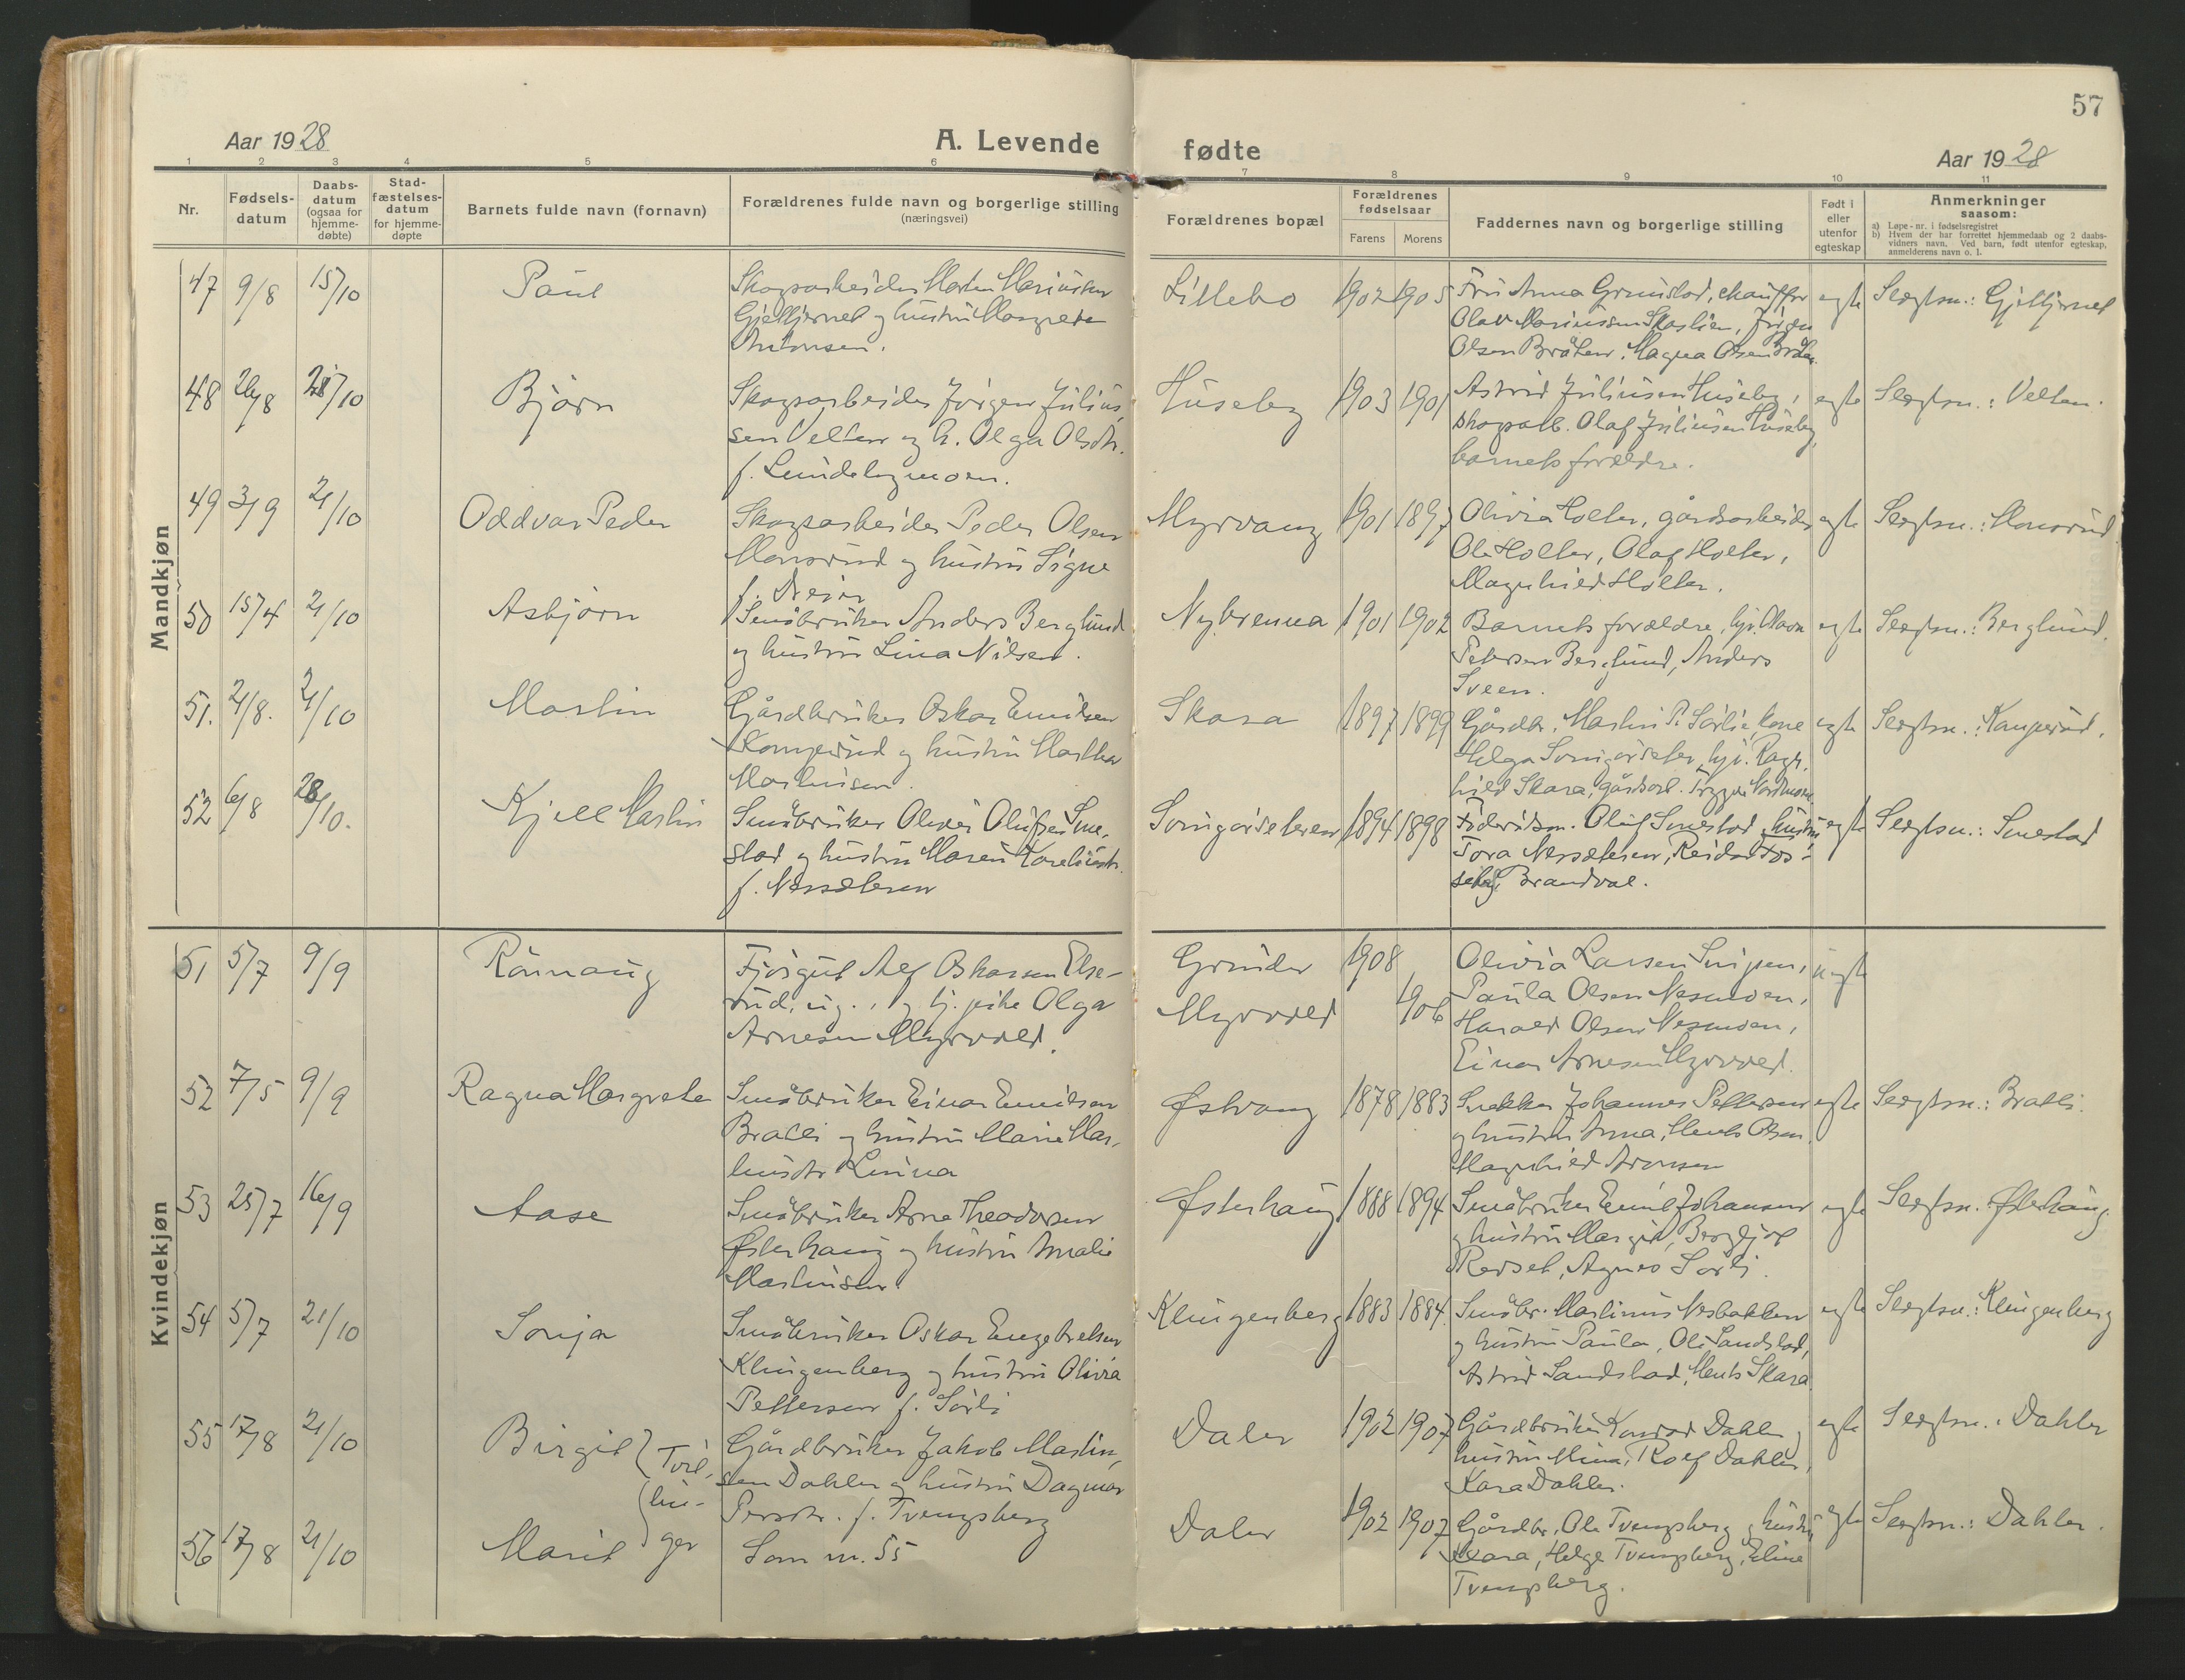 57
Aar 1928
A. Levende
fødte
Aar 1928
1 2 3 4 5 6 7 8 9 10 11
Nr.
Fødsels-
datum
Daabs-
datum
(ogsaa for
hjemme-
døbte)
Stad-
fæstelses-
datum
for hjemme-
døpte
Barnets fulde navn (fornavn)
Forældrenes fulde navn og borgerlige stilling
(næringsvei)
Forældrenes bopæl
Forældrenes
fødselsaar
Farens Morens
Faddernes navn og borgerlige stilling
Født i
eller
utenfor
egteskap
Anmerkninger
saasom:
a) Løpe-nr. i fødselsregistret
b) Hvem der har forrettet hjemmedaab og 2 daabs-
vidners navn. Ved barn, født utenfor egteskap,
anmelderens navn o. l.
Mandkjøn
47 9/8 15/10 Paul
Skogsarbeider Morten Mariussen
Gjeltjernet og hustru Margrete
Antonsen.
Lillebo 1902 1905
Fru Anna Grinstad, chauffør
Olav Mariussen Skaslien, Jörgen
Olsen Bråten, Magna Olsen Bråten.
egte Slegtsn.: Gjeltjernet
48 26/8 21/10 Björn
Skogsarbeider Jörgen Julius-
sen Velten og h. Olga Olsdtr.
f. Lundebymoen.
Huseby 1903 1901
Astrid Juliusen Huseby,
skogsarb. Olaf Juliusen Huseby,
barnets forældre.
egte Slegtsn.: Velten.
49 3/9 21/10 Oddvar Peder
Skogsarbeider Peder Olsen
Monsrud og hustru Signe
f. Dreier
Myrvang 1901 1897
Olivia Holter, gårdsarbeider
Ole Holter, Olaf Holter,
Magnhild Holter.
egte Slegtsn.: Monsrud.
50 15/4 21/10 Asbjörn
Småbruker Anders Berglund
og hustru Lina Nilsen.
Nybrenna 1901 1902
Barnets forældre, hjv. Olava
Petersen Berglund, Anders
Sveen.
egte Slegtsn.: Berglund.
51. 21/8. 21/10 Martin
Gårdbruker Oskar Emilsen
Kamperud og hustru Marthea
Martinsen.
Skara 1897 1899
Gårdbr. Martin P. Sörlie, kone
Helga Songørseter, hjv. Ragn-
hild Skara, gårdsarb. Trygve Nordmoen.
egte Slegtsn.: Kamperud.
52 6/8 28/10. Kjell Martin
Småbruker Oliver Olufsen Sme-
stad og hustru Maren Kareliusdtr.
f. Næssetesen
Songörseteren 1894 1898
Föderådsm. Oluf Smestad, hustru
Tora Næssetesen, Reidar Fos-
seby, Brandval.
egte Slegtsn.: Smestad
Kvindekjøn
51 5/7 9/9 Rönnaug
Fjösgut Alf Oskarsen Else-
rud, ug., og tj. pike Olga
Arnesen Myrvold.
Grinder 1908
Myrvold 1906
Olivia Larsen Snipen,
Paula Olsen Nesmoen,
Harald Olsen Nesmoen,
Einar Arnesen Myrvold.
uegte
52 7/5 9/9 Ragna Margrete
Småbruker Einar Emilsen
Bratli og hustru Marie Mar-
tinsdtr Linna
Østvang 1878 1883
Snekker Johannes Pettersen
og hustru Anna, Ments Olsen,
Magnhild Aronsen
egte Slegtsn.: Bratli.
53 25/7 16/9 Aase
Småbruker Arne Theodorsen
Østerhaug og hustru Amalie
Martinsen
Østerhaug 1888 1894
Småbruker Emil Johansen
og hustru Margit, Bergljot
Revset, Agnes Sörli.
egte Slegtsn. Østerhaug.
54 5/7 21/10 Sonja
Småbruker Oskar Engebretsen
Klingenberg og hustru Olivia
Pettersen f. Sörli
Klingenberg 1883 1884.
Småbr. Martinus Nesbakken
og hustru Paula, Ole Sandstad,
Astrid Sandstad, Ments Skara.
egte Slegtsn.: Klingenberg
55 17/8 21/10 Birgit } Tvil-
lin-
ger
Gårdbruker Jakob Martin-
sen Dahler og hustru Dagmar
Persdtr. f. Tvengsberg
Daler 1902 1907
Gårdbruker Konrad Dahler og
hustru Mina, Rolf Dahler,
Kara Dahler.
egte Slegtsn.: Dahler
56 17/8 21/10 Marit
Som nr. 55
Daler 1902 1907
Gårdbr. Ole Tvengsberg og hustru
Kara, Helge Tvengsberg, Eline
Tvengsberg.
egte Slegtsn.: Dahler.